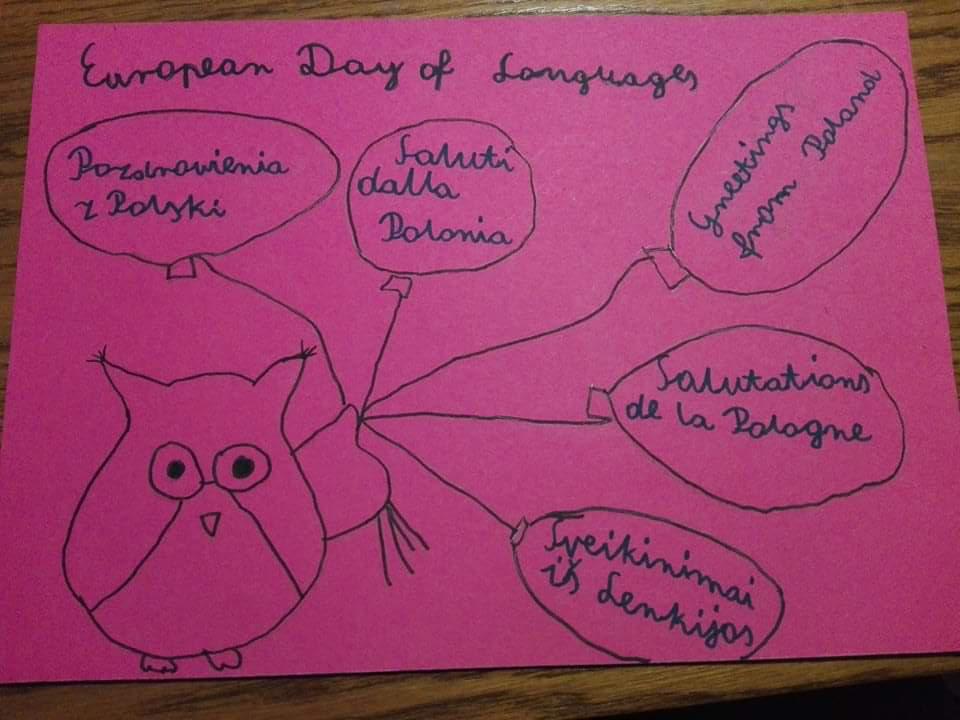 European Day of Languages
Pozdrowienia
z Polski
Saluti
dalla
Polonia
Greetings
from Poland
Salutations
de la Pologne
Sveikinimai
iš Lenkijos